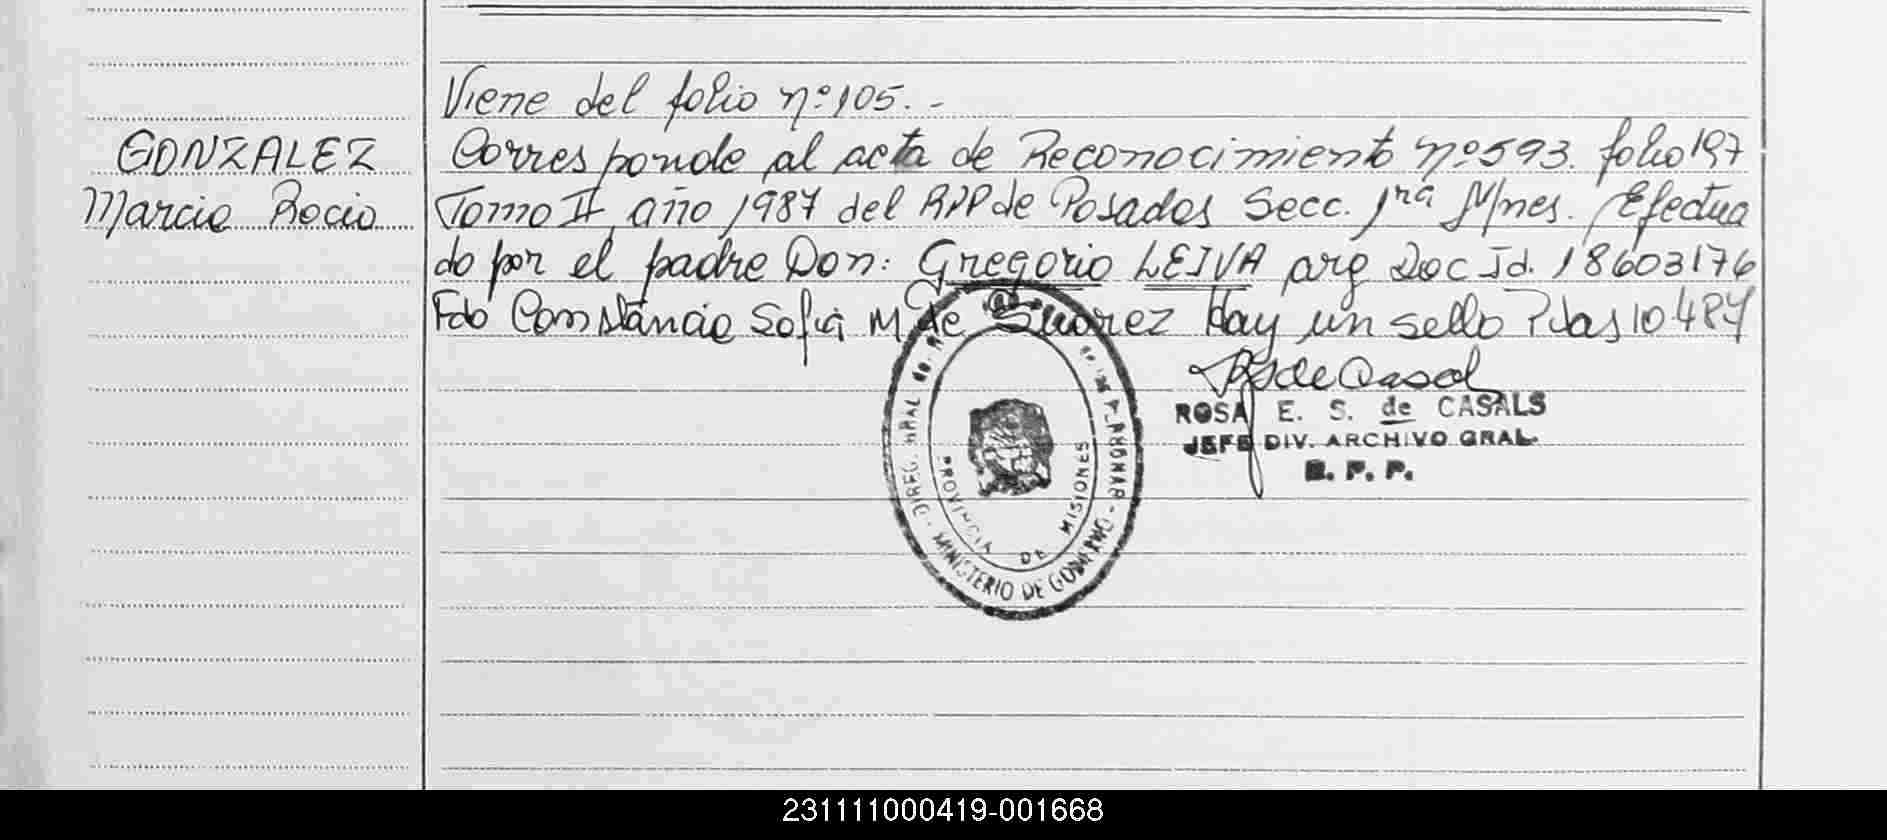 Viene del folio nº 105.-
GONZALEZ
Marcia Rocio
Corresponde al acta de Reconocimiento nº 593. folio 197
Tomo II, año 1987 del RPP de Posadas Secc. 1ra Mnes. Efectua
do por el padre Don: Gregorio LEIVA arg Doc Id. 18603176
Fdo Constancia Sofia M de Suarez Hay un sello Pdas 10 4 87
ROSA E. S. de CASALS
JEFE DIV. ARCHIVO GRAL.
R. P. P.
DIREC. GRAL de
MINISTERIO DE GOBIERNO
PROVINCIA DE MISIONES
231111000419-001668